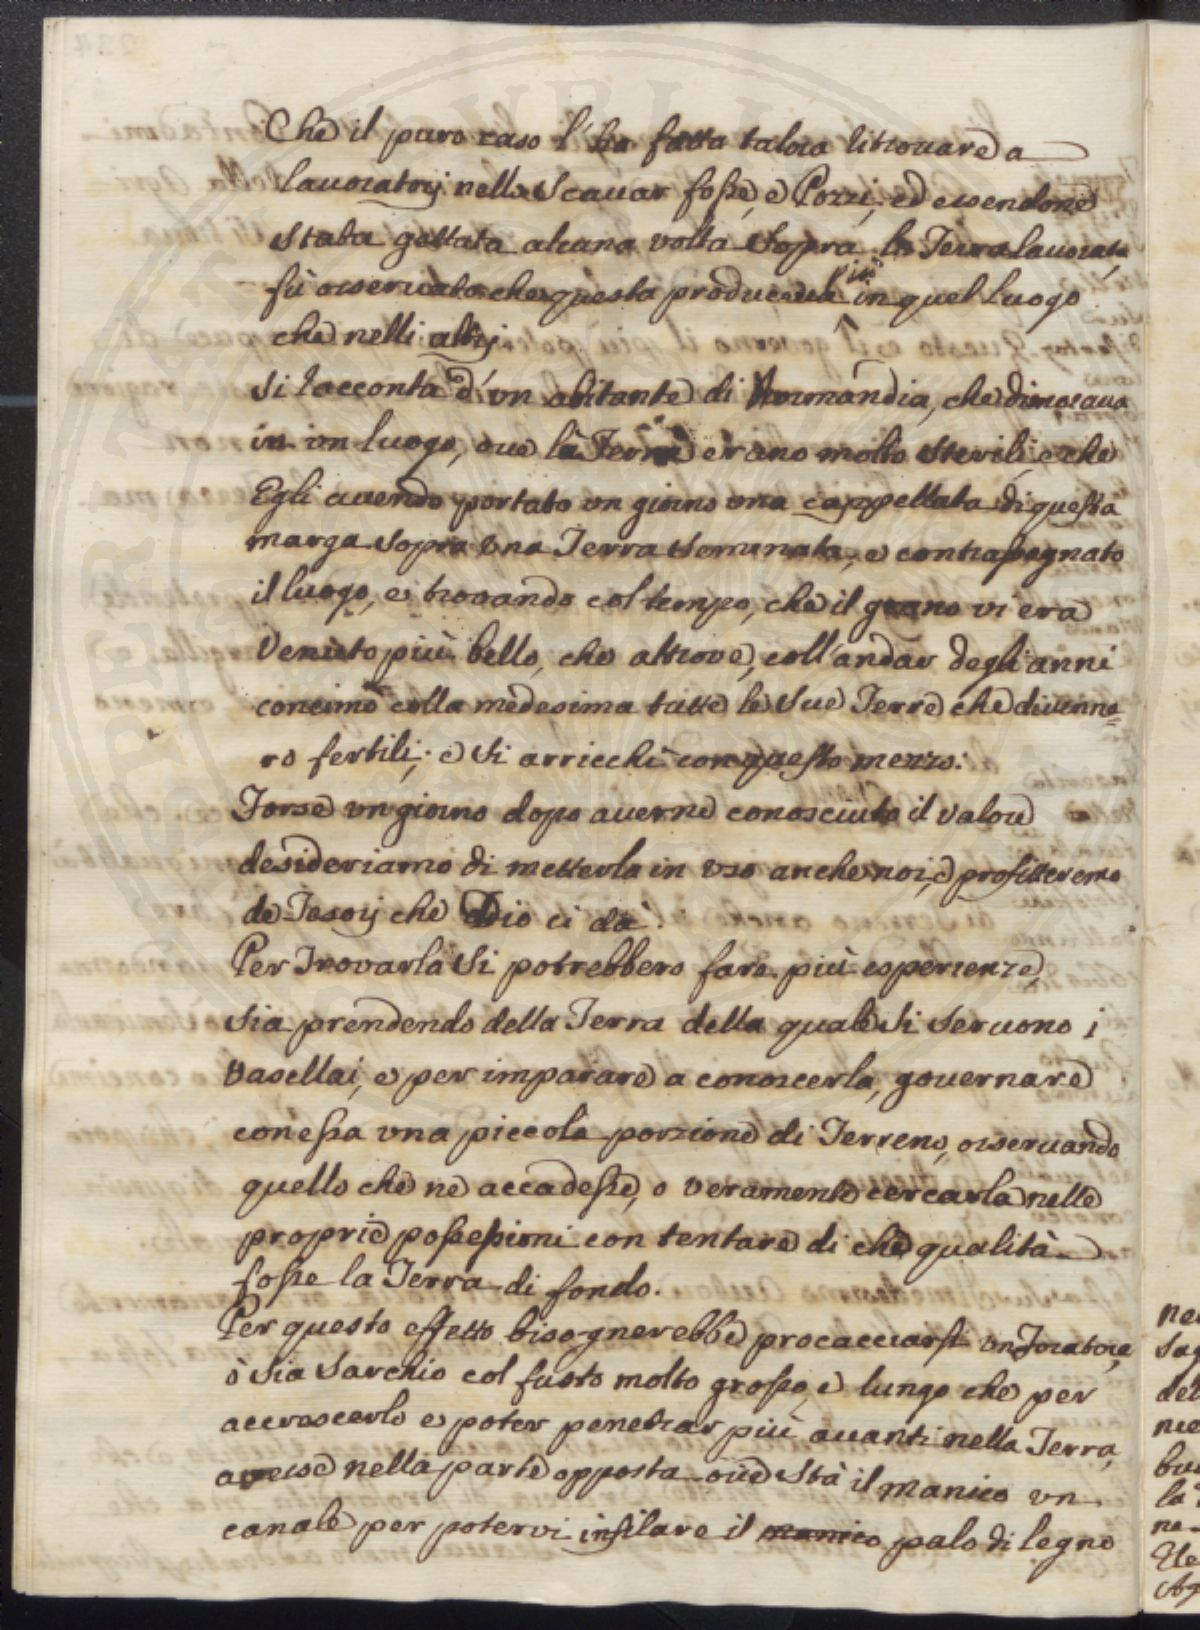 Che il puro caso l'ha fatta talora ritrovare a
lauoratorij nella Scauar fosse, e Pozzi, ed essendone
stata gettata alcuna volta sopra la Terra lauorata
fù osseruato che questa produceua più in quel luogo
che nelli altrij
Si racconta d'un abitante di Normandia, che dimoraua
in un luogo, oue le Terre erano molto sterili, e che
Egli auendo portato un giorno una cappellata di questa
marga sopra una Terra seminata, e contrasegnato
il luogo, e trouando col tempo, che il grano vi era
Venuto più bello, che altrove, coll'andar degli anni
concimò colla medesima tutte le Sue Terre che diuenne=
ro fertili; e Si arricchì con questo mezzo:
Forse un giorno dopo auerne conosciuto il valore
desideriamo di metterla in uso anche noi, e profitteremo
de Tesorij che Dio ci dà.
Per Trovarla Si potrebbero fare più esperienze,
sia prendendo della Terra della quale Si seruono i
Vasellai, e per imparare a conoscerla, gouernare
con essa una piccola porzione di Terreno, osseruando
quello che ne accadesse, o veramente cercarla nelle
proprie possessioni con tentare di che qualità
fosse la Terra di fondo.
Per questo effetto bisognerebbe procacciarsi un Foratore,
ò sia Sarchio col fusto molto grosso, e lungo che per
accrescerlo e poter penetrar più auanti nella Terra,
auesse nella parte opposta oue Stà il manico un
canale per potervi infilare il manico palo di legno